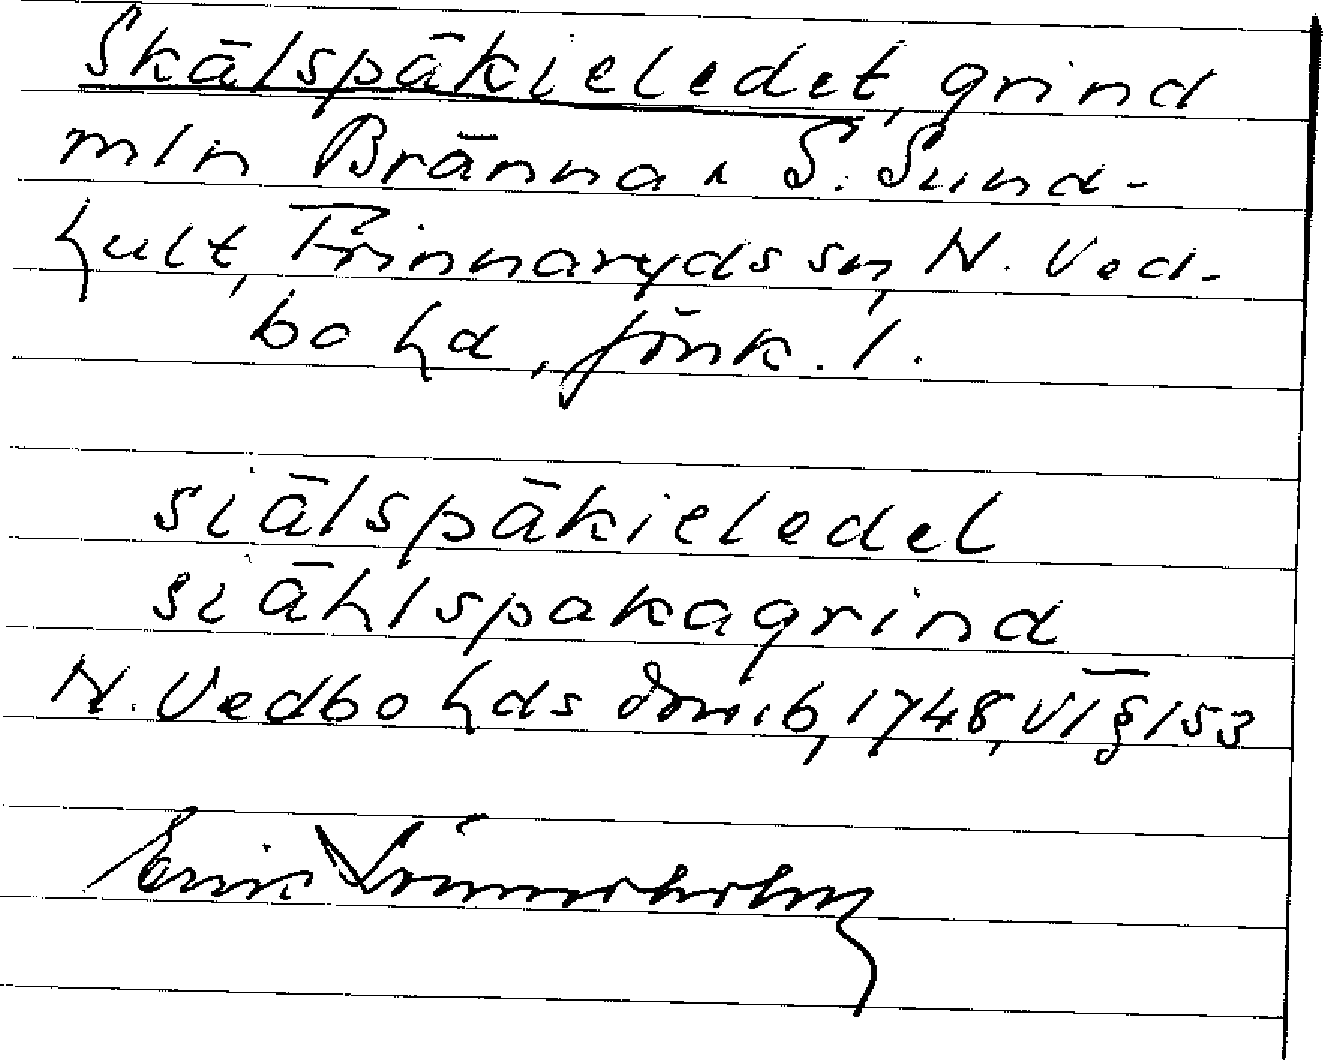 Skälspäkieledet, grind
mln Bränna i S. Sund-
hult, Frinnaryds sn, N. Ved-
bo hd, Jönk. l.
siälspäkieledel
siählspakagrind
N. Vedbo hds domb, 1748, VI § 153
Erik